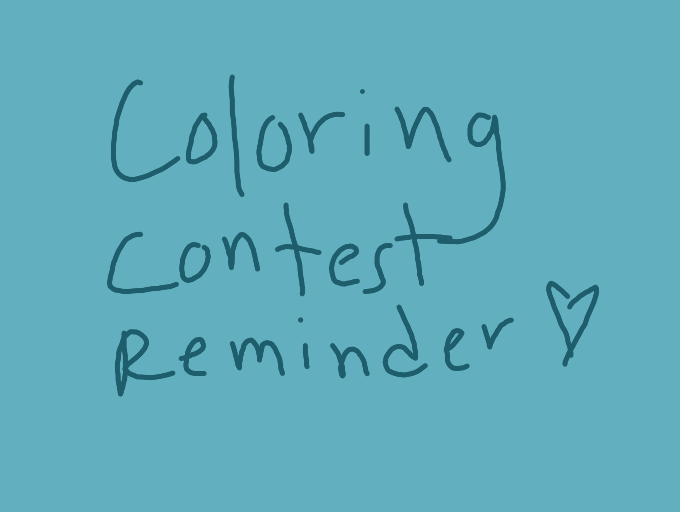 Coloring
Contest
Reminder ♡